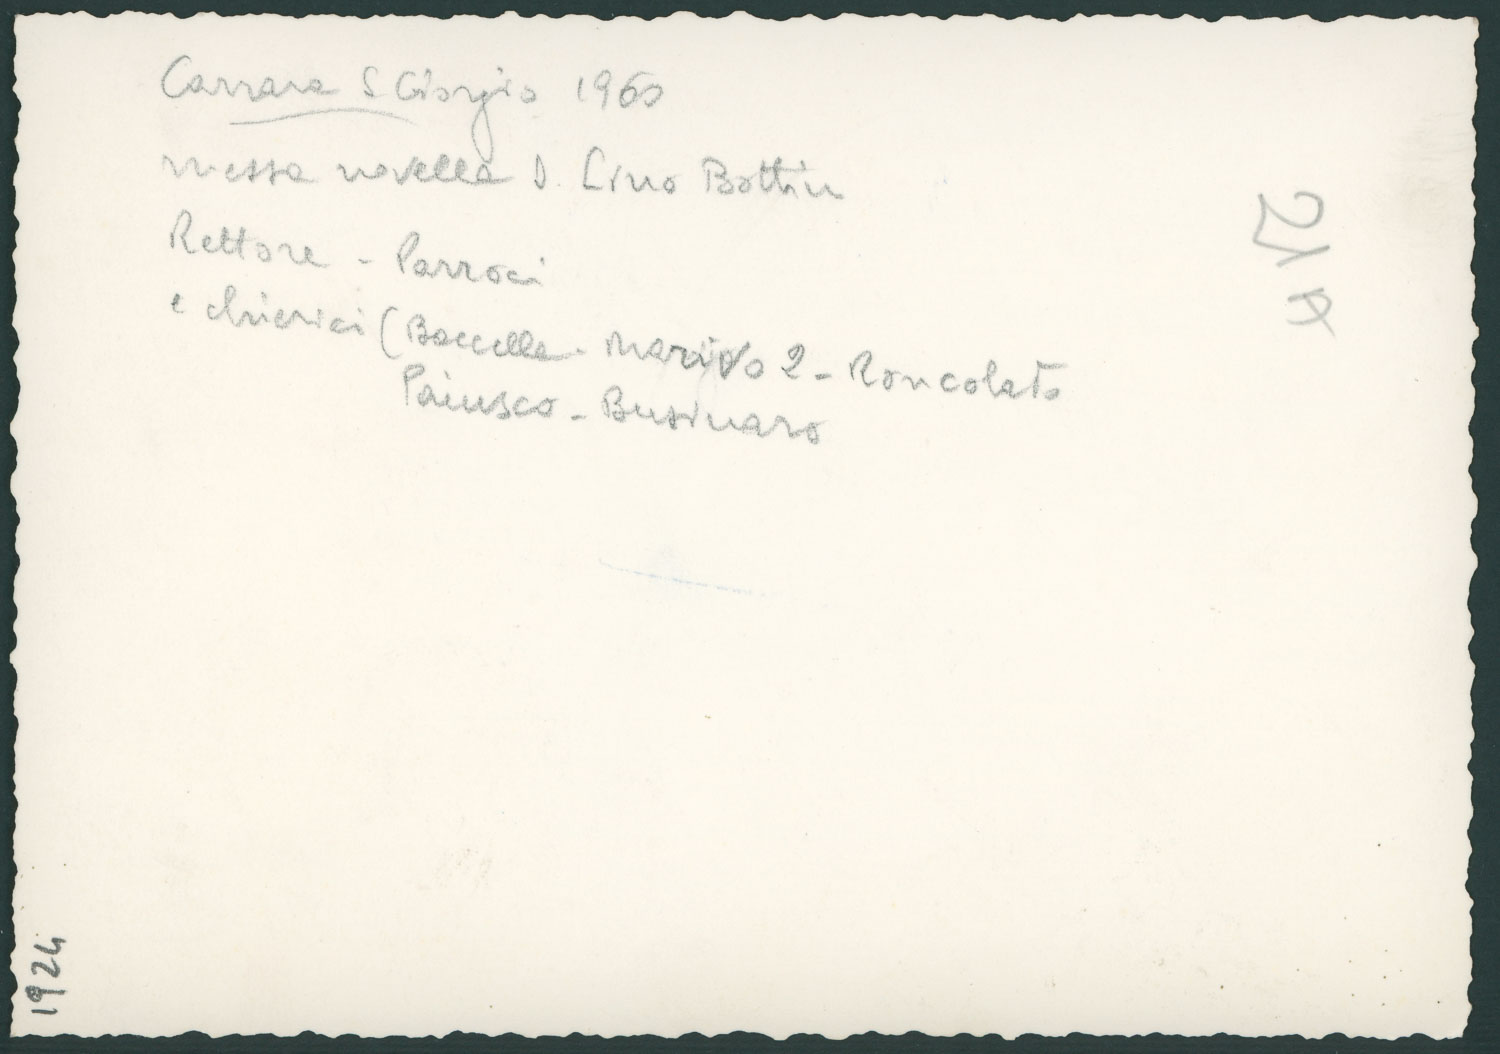 Carrara S Giorgio 1960
messa novella D. Lino Bottin
Rettore - Parroci
e chierici (Boccella - Marino 2 - Roncolato
Paiusco - Businaro
21A
1924